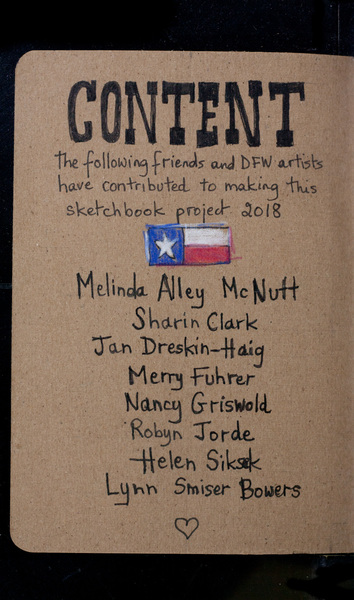 CONTENT
The following friends and DFW artists
have contributed to making this
sketchbook project 2018
Melinda Alley McNutt
Sharin Clark
Jan Dreskin-Haig
Merry Fuhrer
Nancy Griswold
Robyn Jorde
Helen Siksek
Lynn Smiser Bowers